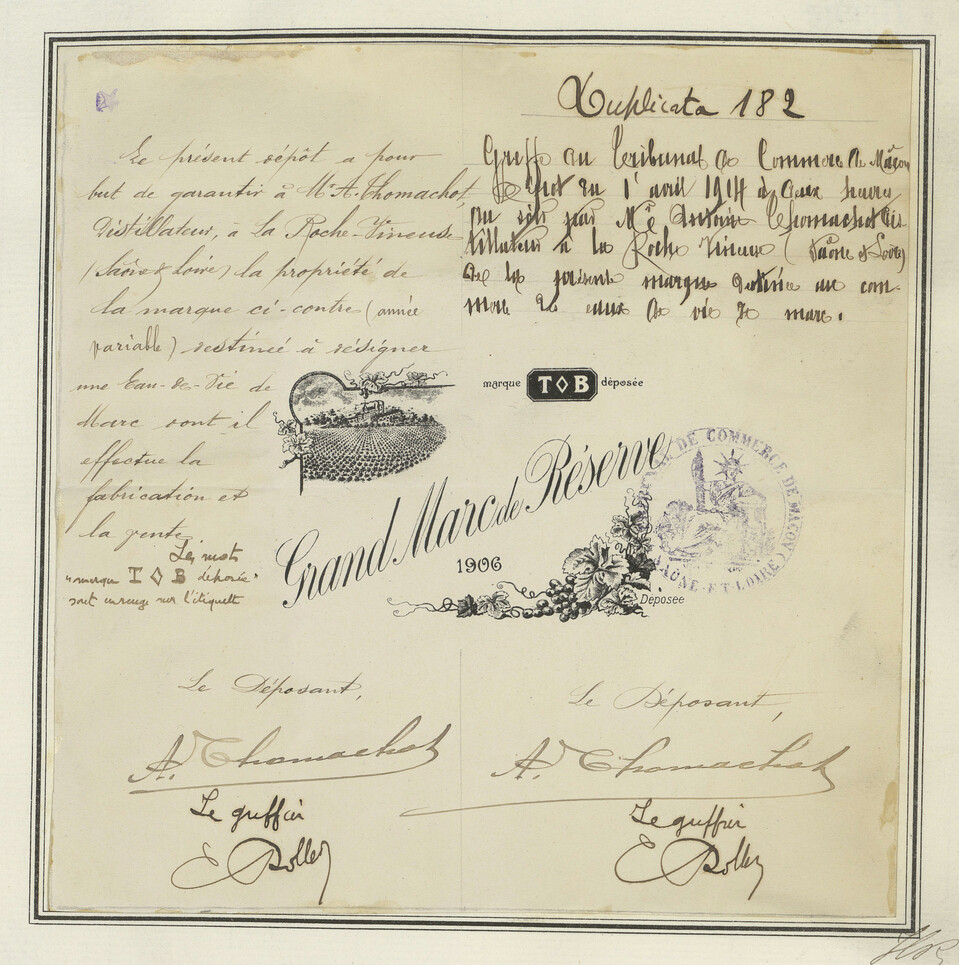 Duplicata 182
Le présent dépôt a pour
but de garantir à Mr A. Thomachot,
distillateur, à La Roche-Vineuse
(Saône & Loire) la propriété de
la marque ci-contre (année
variable) destinée à désigner
une Eau-de-Vie de
Marc dont il
effectue la
fabrication et
la vente
Les mots
"marque T◊B déposée"
sont en rouge sur l'étiquette
Greffe du Tribunal de Commerce de Mâcon
Dépôt du 1er avril 1914 à deux heures
du soir par Mr Antoine Thomachot dis-
tillateur à la Roche Vineuse (Saône et Loire)
de la présente marque destinée au com-
merce de eaux de vie de marc.
marque T◊B déposée
Grand Marc de Réserve
1906
Déposée
TRIBUNAL DE COMMERCE DE MACON
SAÔNE-ET-LOIRE
Le Déposant,
A. Thomachot
Le greffier
E Rolley
Le Déposant,
A. Thomachot
Le greffier
E Rolley